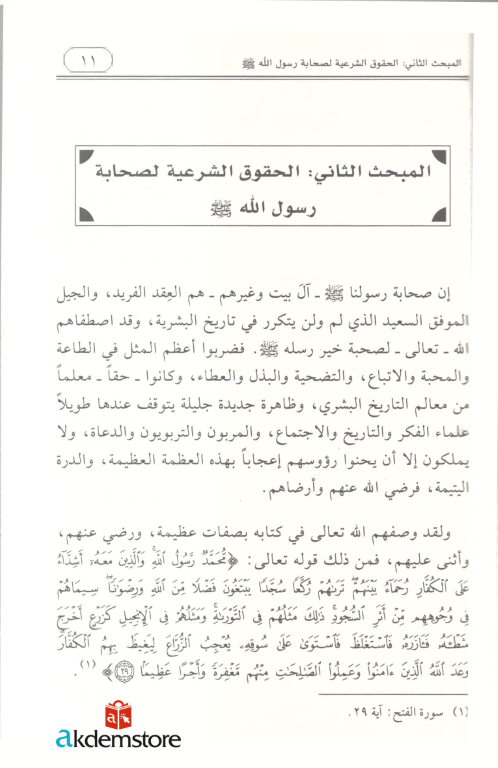 المبحث الثاني: الحقوق الشرعية لصحابة رسول الله ﷺ
١١
المبحث الثاني: الحقوق الشرعية لصحابة
رسول الله ﷺ
إن صحابة رسولنا ﷺ ـ آلَ بيت وغيرهم ـ هم العِقد الفريد، والجيل
الموفق السعيد الذي لم ولن يتكرر في تاريخ البشرية، وقد اصطفاهم
الله ـ تعالى ـ لصحبة خير رسله ﷺ. فضربوا أعظم المثل في الطاعة
والمحبة والاتباع، والتضحية والبذل والعطاء، وكانوا ـ حقاً ـ معلماً
من معالم التاريخ البشري، وظاهرة جديدة جليلة يتوقف عندها طويلاً
علماء الفكر والتاريخ والاجتماع، والمربون والتربويون والدعاة، ولا
يملكون إلا أن يحنوا رؤوسهم إعجاباً بهذه العظمة العظيمة، والدرة
اليتيمة، فرضي الله عنهم وأرضاهم.
ولقد وصفهم الله تعالى في كتابه بصفات عظيمة، ورضي عنهم،
وأثنى عليهم، فمن ذلك قوله تعالى: ﴿مُّحَمَّدٌ رَّسُولُ ٱللَّهِ وَٱلَّذِينَ مَعَهُۥٓ أَشِدَّآءُ
عَلَى ٱلْكُفَّارِ رُحَمَآءُ بَيْنَهُمْ تَرَىٰهُمْ رُكَّعًا سُجَّدًا يَبْتَغُونَ فَضْلًا مِّنَ ٱللَّهِ وَرِضْوَٰنًا سِيمَاهُمْ
فِى وُجُوهِهِم مِّنْ أَثَرِ ٱلسُّجُودِ ذَٰلِكَ مَثَلُهُمْ فِى ٱلتَّوْرَىٰةِ وَمَثَلُهُمْ فِى ٱلْإِنجِيلِ كَزَرْعٍ أَخْرَجَ
شَطْـَٔهُۥ فَـَٔازَرَهُۥ فَٱسْتَغْلَظَ فَٱسْتَوَىٰ عَلَىٰ سُوقِهِۦ يُعْجِبُ ٱلزُّرَّاعَ لِيَغِيظَ بِهِمُ ٱلْكُفَّارَ
وَعَدَ ٱللَّهُ ٱلَّذِينَ ءَامَنُوا۟ وَعَمِلُوا۟ ٱلصَّـٰلِحَـٰتِ مِنْهُم مَّغْفِرَةً وَأَجْرًا عَظِيمًۢا ۝٢٩﴾ (١).
(١) سورة الفتح: آية ٢٩.
akdemstore